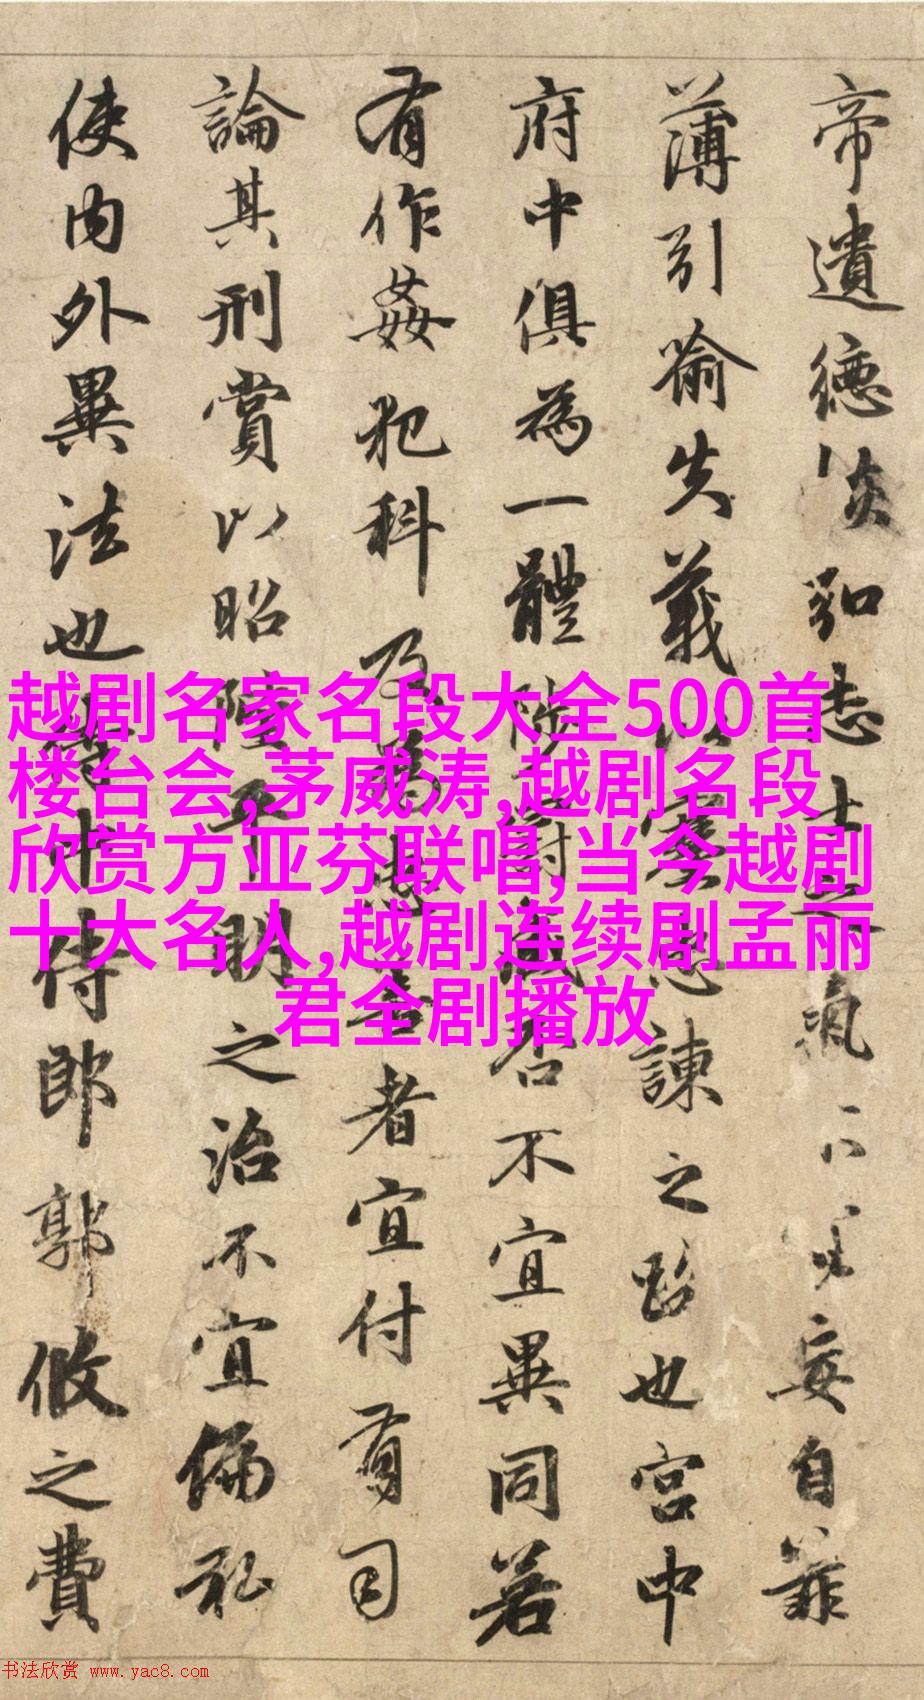 帝遺德恢弘志士之氣不妄自菲
薄引喻失義以塞忠諫之路也宮中
府中俱為一體陟罰臧否不宜異同若
有作姦犯科及為忠善者宜付有司
論其刑賞以昭陛平明之治不宜偏私
使內外異法也侍中侍郎郭攸之費
越剧名家名段大全500首
楼台会,茅威涛,越剧名段
欣赏方亚芬联唱,当今越剧
十大名人,越剧连续剧孟丽
君全剧播放
书法欣赏 www.yac8.com